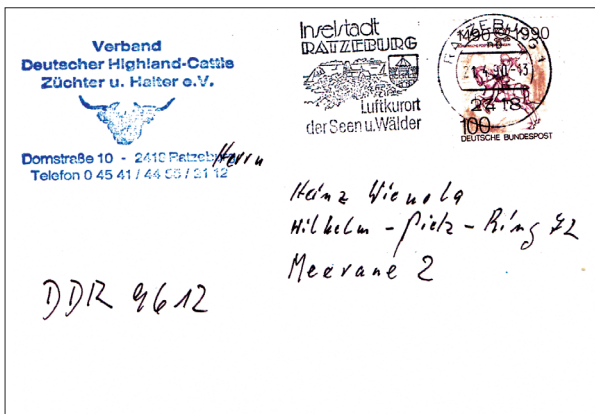 Verband
Deutscher Highland-Cattle
Züchter u. Halter e.V.
Domstraße 10 - 2418 Ratzeburg
Telefon 0 45 41 / 44 55 / 21 12
Inselstadt
RATZEBURG
Luftkurort
der Seen u. Wälder
RATZEBURG 1
90-13
2418
1490 1990
100
DEUTSCHE BUNDESPOST
Herrn
Heinz
Wilhelm - Pieck - Ring 42
Meerane 2
DDR 9612